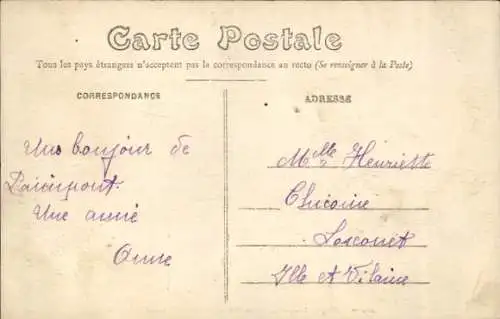 Carte Postale
Tous les pays étrangers n'acceptent pas la correspondance au recto (Se renseigner à la Poste)
CORRESPONDANCE
ADRESSE
Une bonjour de
Une amie
Anne
Mlle Henriette
Chicoine
Loscouët
Ille et Vilaine